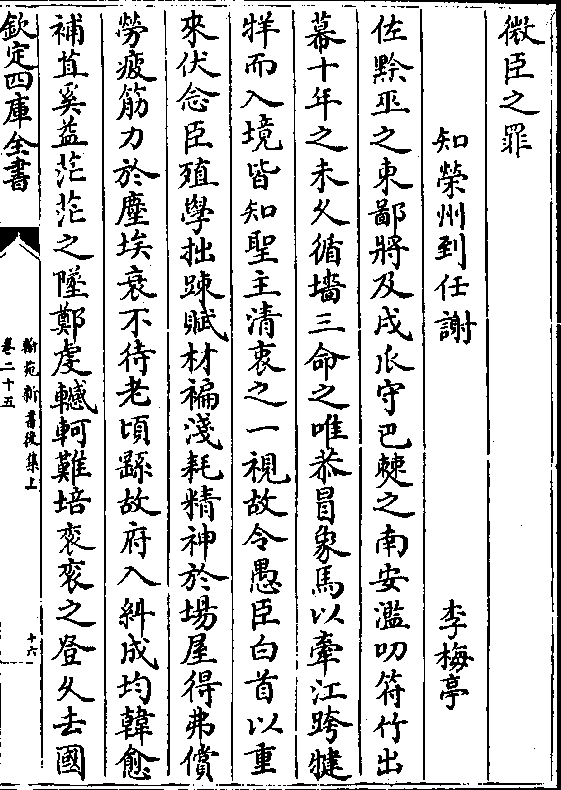 微臣之罪
知榮州到任謝 李梅亭
佐黔巫之東鄙將及戍瓜守巴僰之南安濫叨符竹出
幕十年之未久循墻三命之唯恭冒象馬以牽江跨犍
牂而入境皆知聖主清衷之一視故令愚臣白首以重
來伏念臣殖學拙踈賦材褊淺耗精神於場屋得弗償
勞疲筋力於塵埃衰不待老頃繇故府入糾成均韓愈
補苴奚益茫茫之墜鄭虔轗軻難培衮衮之登久去國
欽定四庫全書
翰苑新書後集上
卷二十五
十六